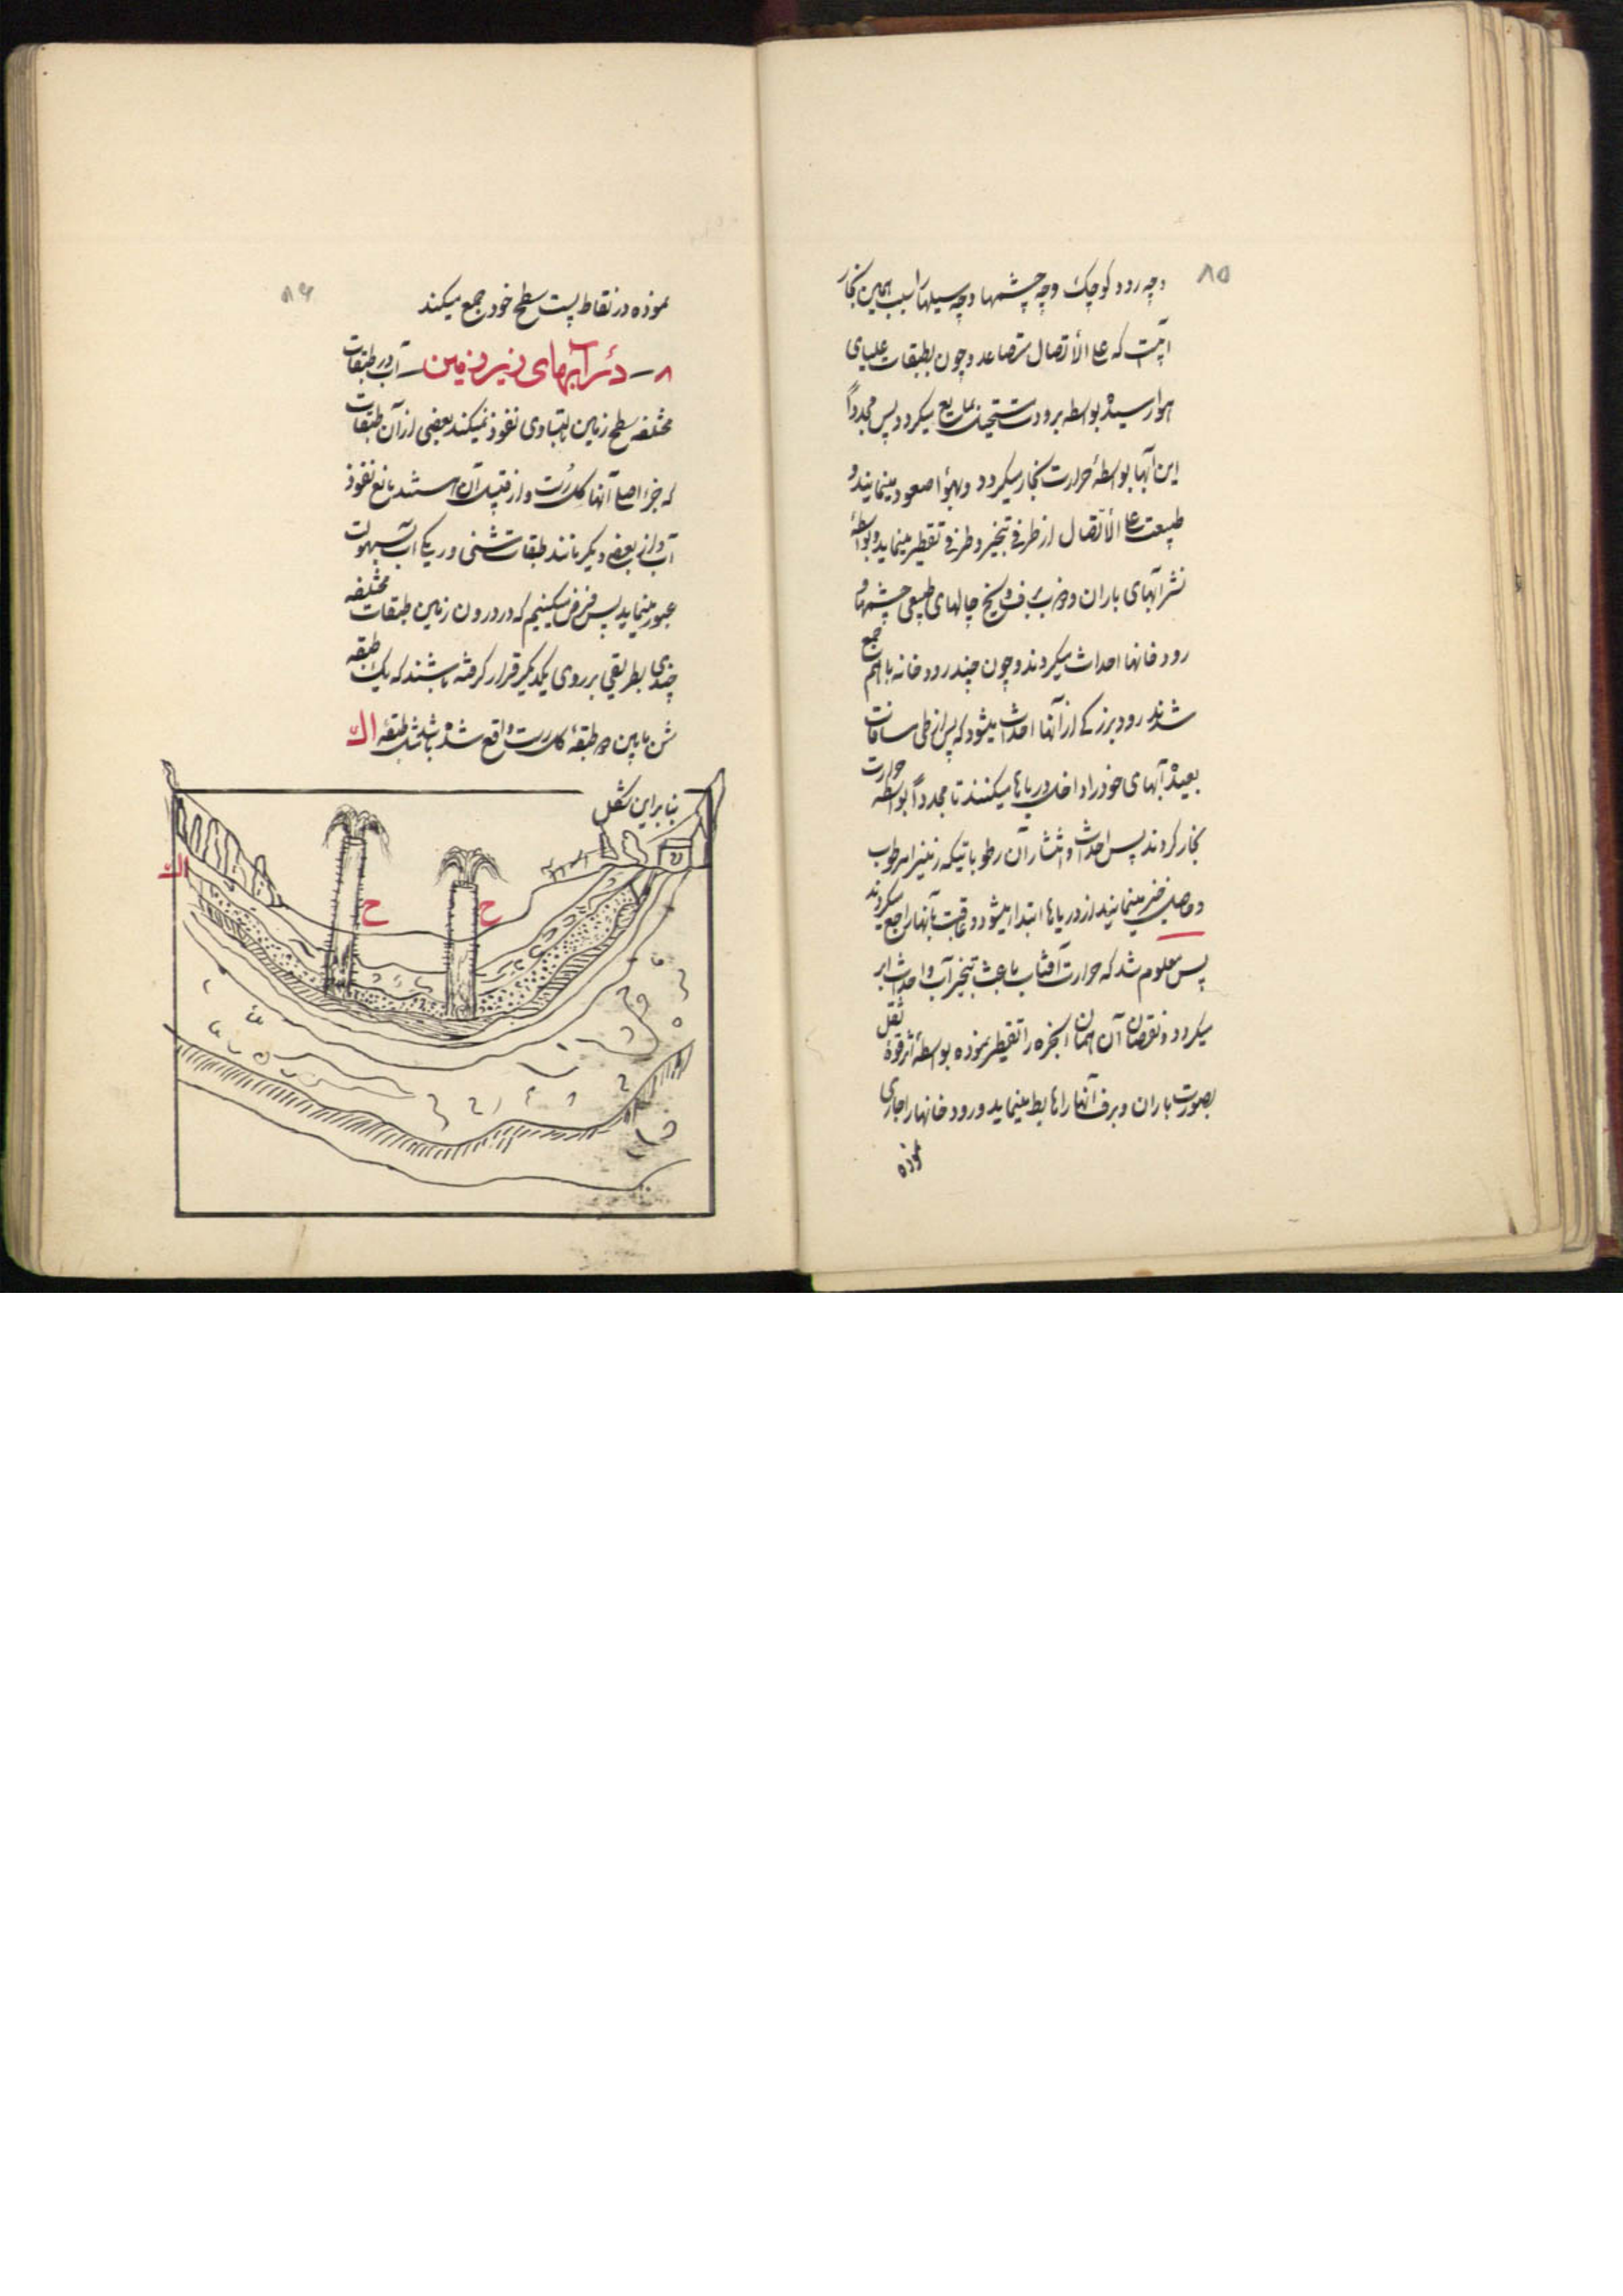 ۸۵
وچه رود کوچک وچه چشمها وچه سیلها را سبب همین بخار
آبست که علی الأتصال متصاعد و چون بطبقات علیای
هوا رسیده بواسطه برودت مستحیل بمایع میکردد پس مجدداً
این آبها بواسطهٔ حرارت بخار میکردد و بهوا صعود مینمایند و
طبیعت علی الأتصال از طرفی تبخیر و طرفی تقطیر مینماید و بواسطهٔ
نشر آبهای باران و ذوب برف و یخ چالهای طبیعی چشمها و
رود خانها احداث میکردند و چون چند رود خانه با هم جمع
شدند رود بزرکی از آنها احداث میشود که پس از طی مسافات
بعیده آبهای خود را داخل دریاها میکنند تا مجدداً بواسطه حرارت
بخار کردند پس احداث و انتشار آن رطوباتیکه زمینرا مرطوب
و حاصل خیز مینمایند از دریاها ابتدا میشود و عاقبت بآنها راجع میکردند
پس معلوم شد که حرارت آفتاب باعث تبخیر آب و احداث ابر
میکردد و نقصان آن همان ابخره را تقطیر نموده بواسطهٔ اثر قوهٔ ثقل
بصورت باران و برف آنها را هابط مینماید و رود خانها را جاری
نموده
۸۶
نموده در نقاط پست سطح خود جمع میکند
۸ – در آبهای زیر زمین – آب در طبقات
مختلفه سطح زمین بتساوی نفوذ نمیکند بعضی از آن طبقات
که جزء اصلی آنها کل رُست و از قبیل آن هستند مانع نفوذ
آب و از بعضی دیکر مانند طبقات شنی و ریکی آب بسهولت
عبور مینماید پس فرض میکنیم که در درون زمین طبقات مختلفه
چندی بطریقی بر روی یکدیکر قرار کرفته باشند که یک طبقه
شن مابین دو طبقهٔ کل رست واقع شده باشد مثل طبقهٔ اال
بنابراین شکل
اال
ح
ح